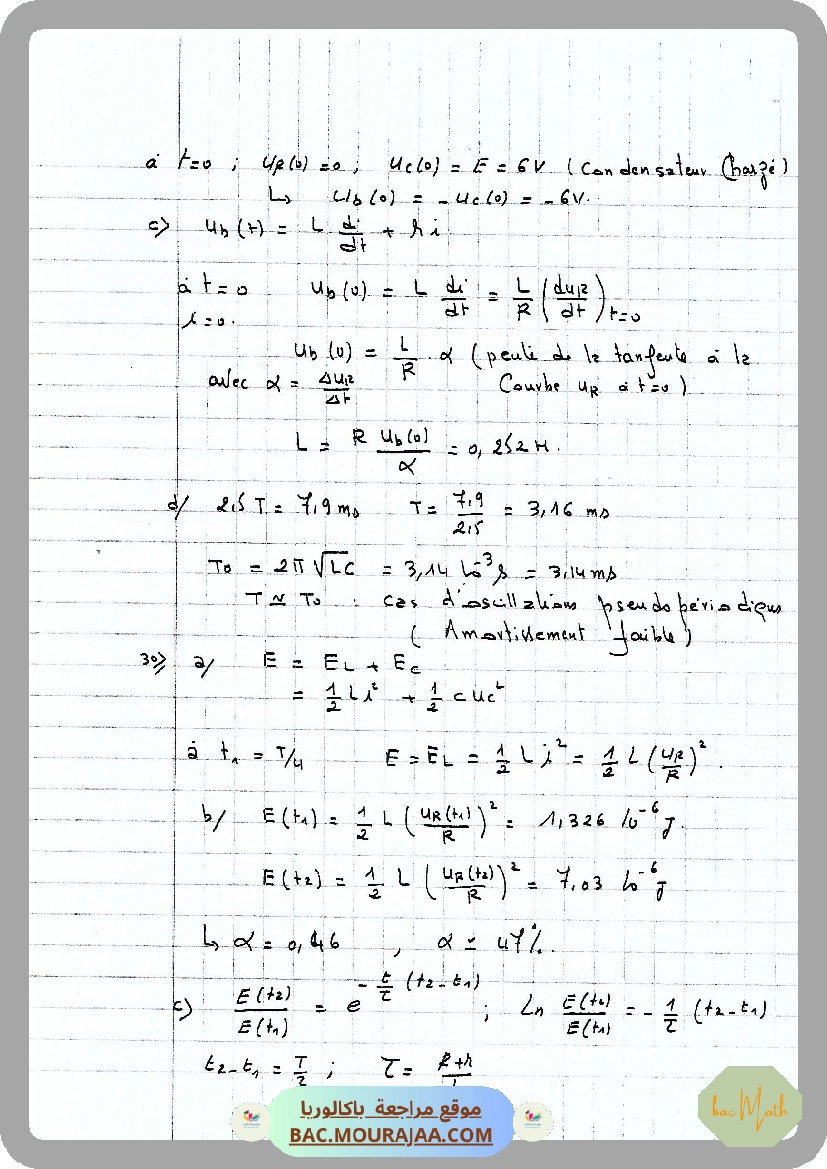 à t=0 ; uR(0)=0 ; uc(0) = E = 6V (Condensateur Chargé)
↳ ub(0) = -uc(0) = -6V.
c) ub(t) = L di/dt + r i
à t=0 ub(0) = L di/dt = L/R (duR/dt)t=0
i=0.
ub(0) = L/R . α (pente de la tangente à la
avec α = ΔuR/Δt Courbe uR à t=0)
L = R ub(0)/α = 0,252 H.
d/ 2,5 T = 7,9 ms T = 7,9/2,5 = 3,16 ms
To = 2π √LC = 3,14 10^-3 s = 3,14 ms
T ≃ To : cas d'oscillations pseudopériodique
( Amortissement faible)
3°) a/ E = EL + Ec
= 1/2 L i² + 1/2 c uc²
à t1 = T/4 E = EL = 1/2 L i² = 1/2 L (uR/R)².
b/ E(t1) = 1/2 L (uR(t1)/R)² = 1,326 10^-6 J.
E(t2) = 1/2 L (uR(t2)/R)² = 7,03 10^-6 J
↳ α = 0,46 , α ≃ 47%.
c) E(t2)/E(t1) = e^(-t/τ (t2-t1)) ; Ln E(t2)/E(t1) = - 1/τ (t2-t1)
t2-t1 = T/2 ; τ = R+r
موقع مراجعة باكالوريا
BAC.MOURAJAA.COM
bac Math